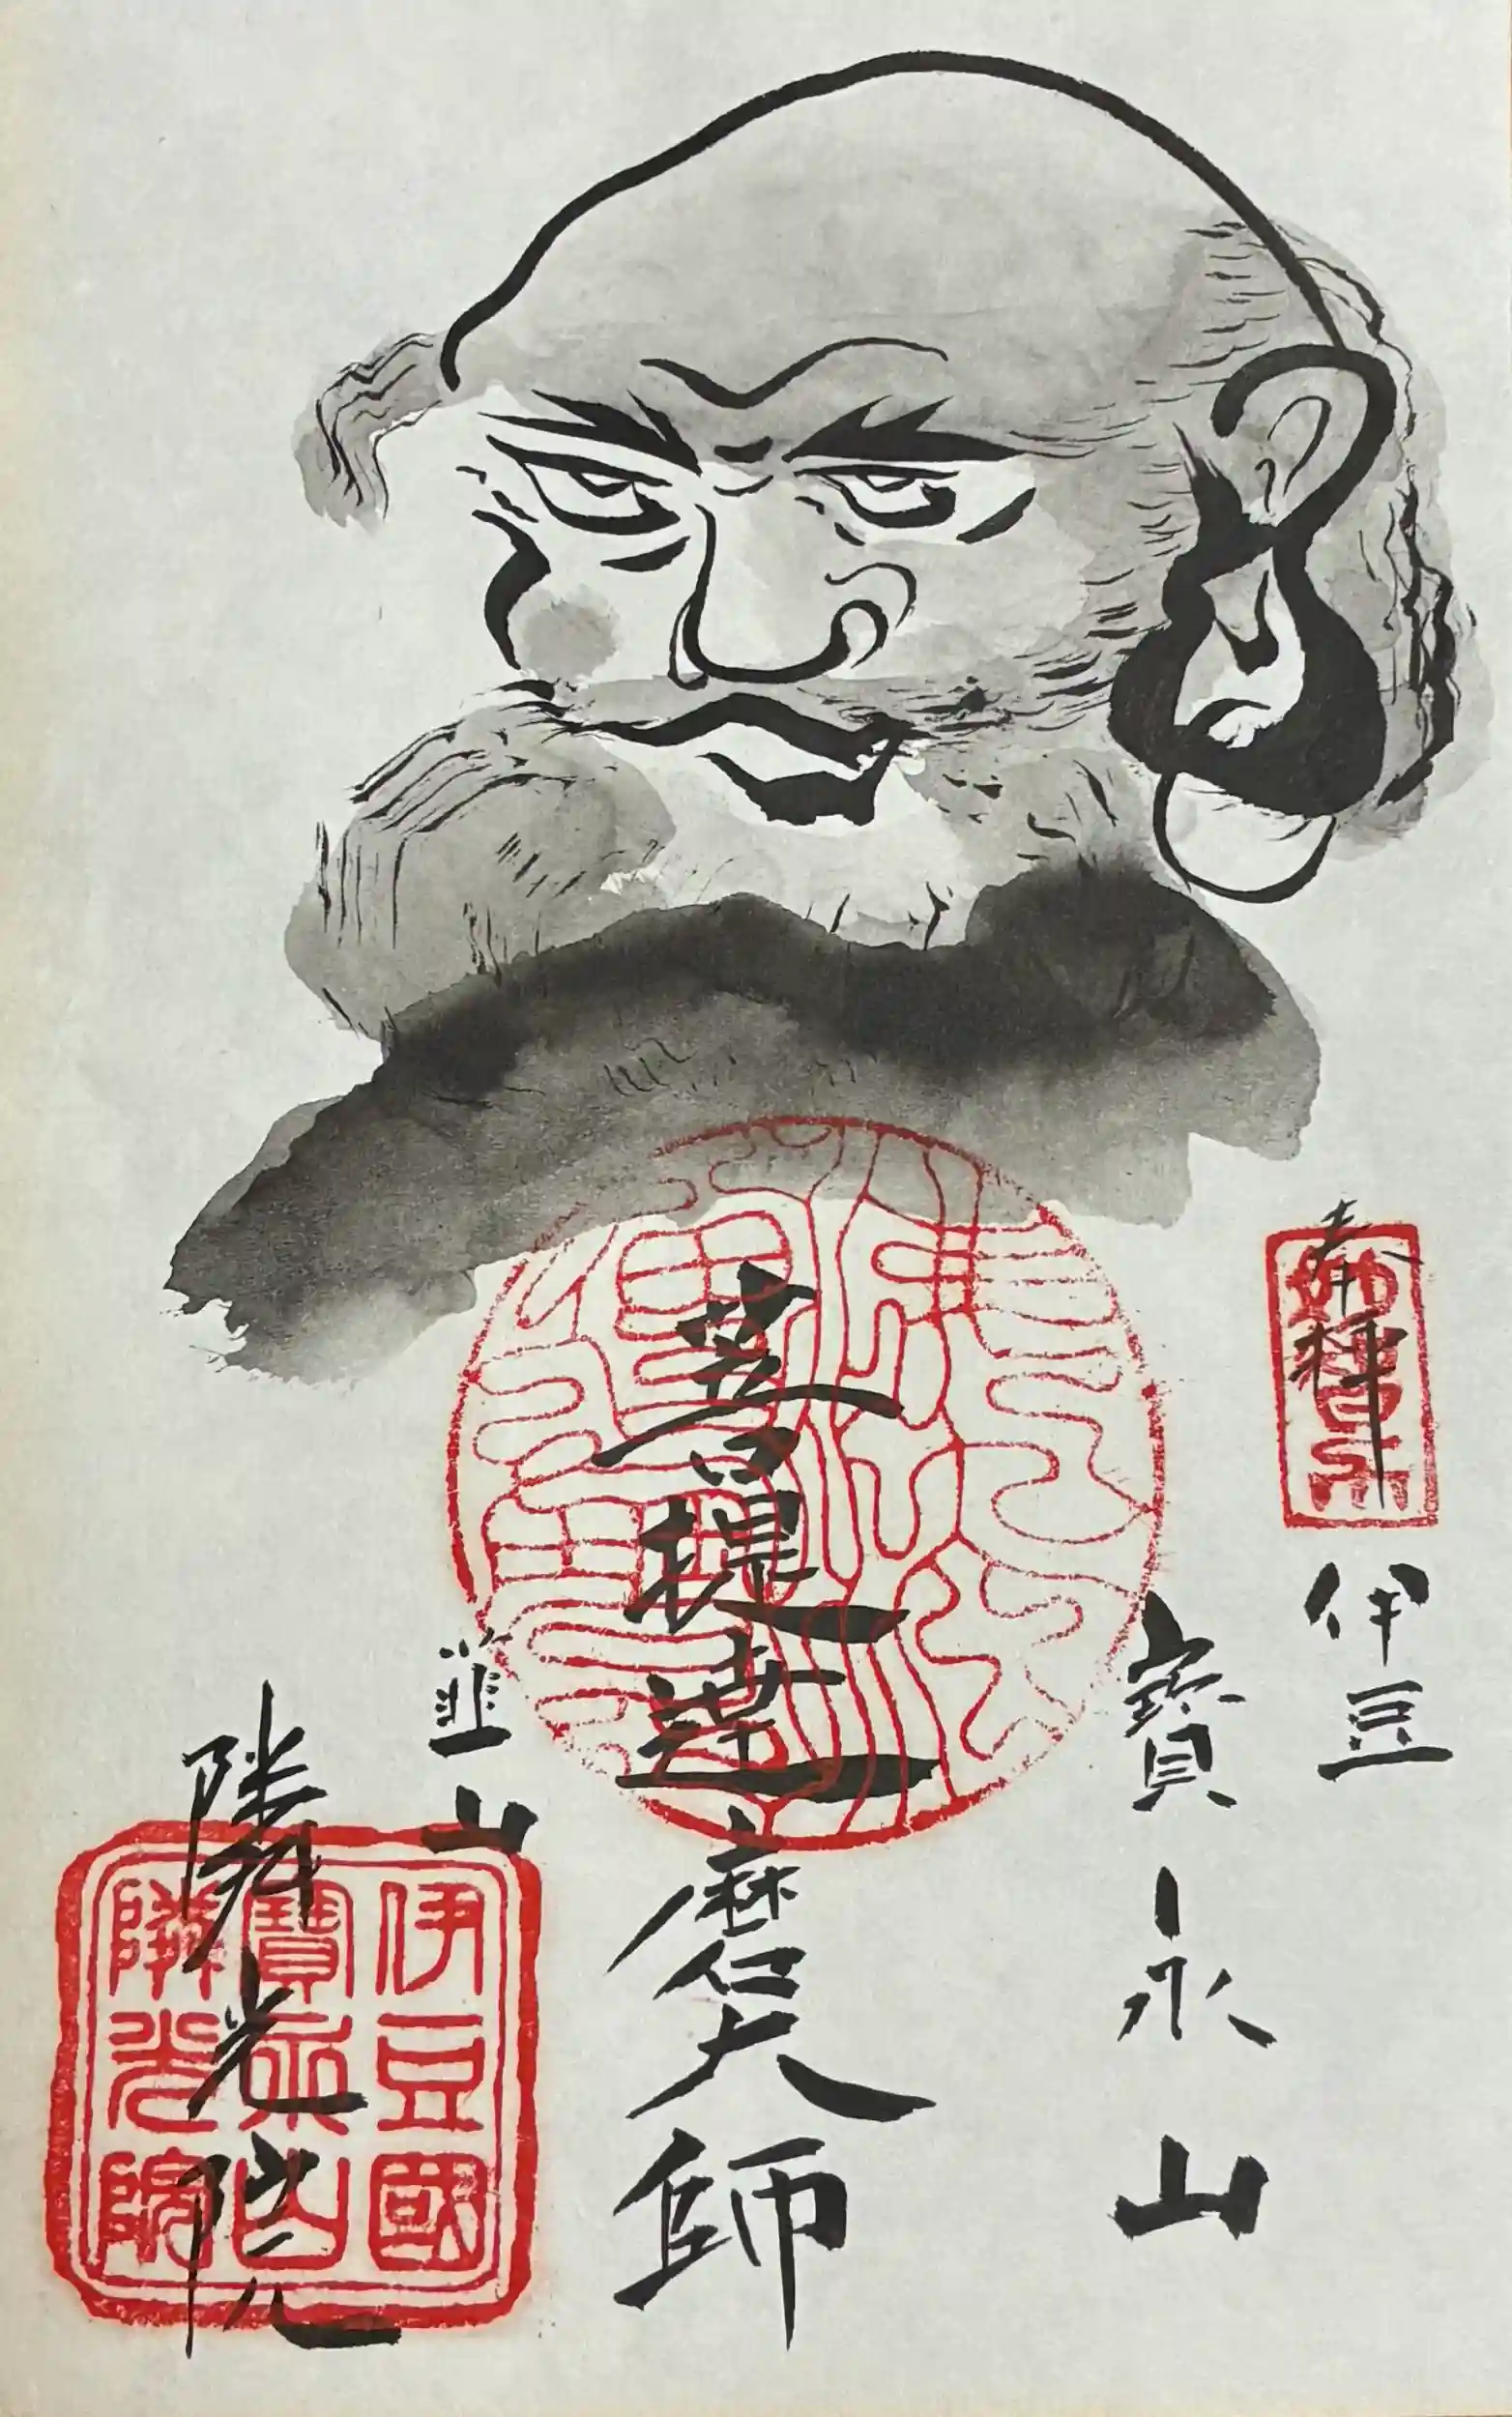 奉拝
伊豆
寶永山
菩提達磨大師
韮山
隣光院
伊豆國
寶永山
隣光院